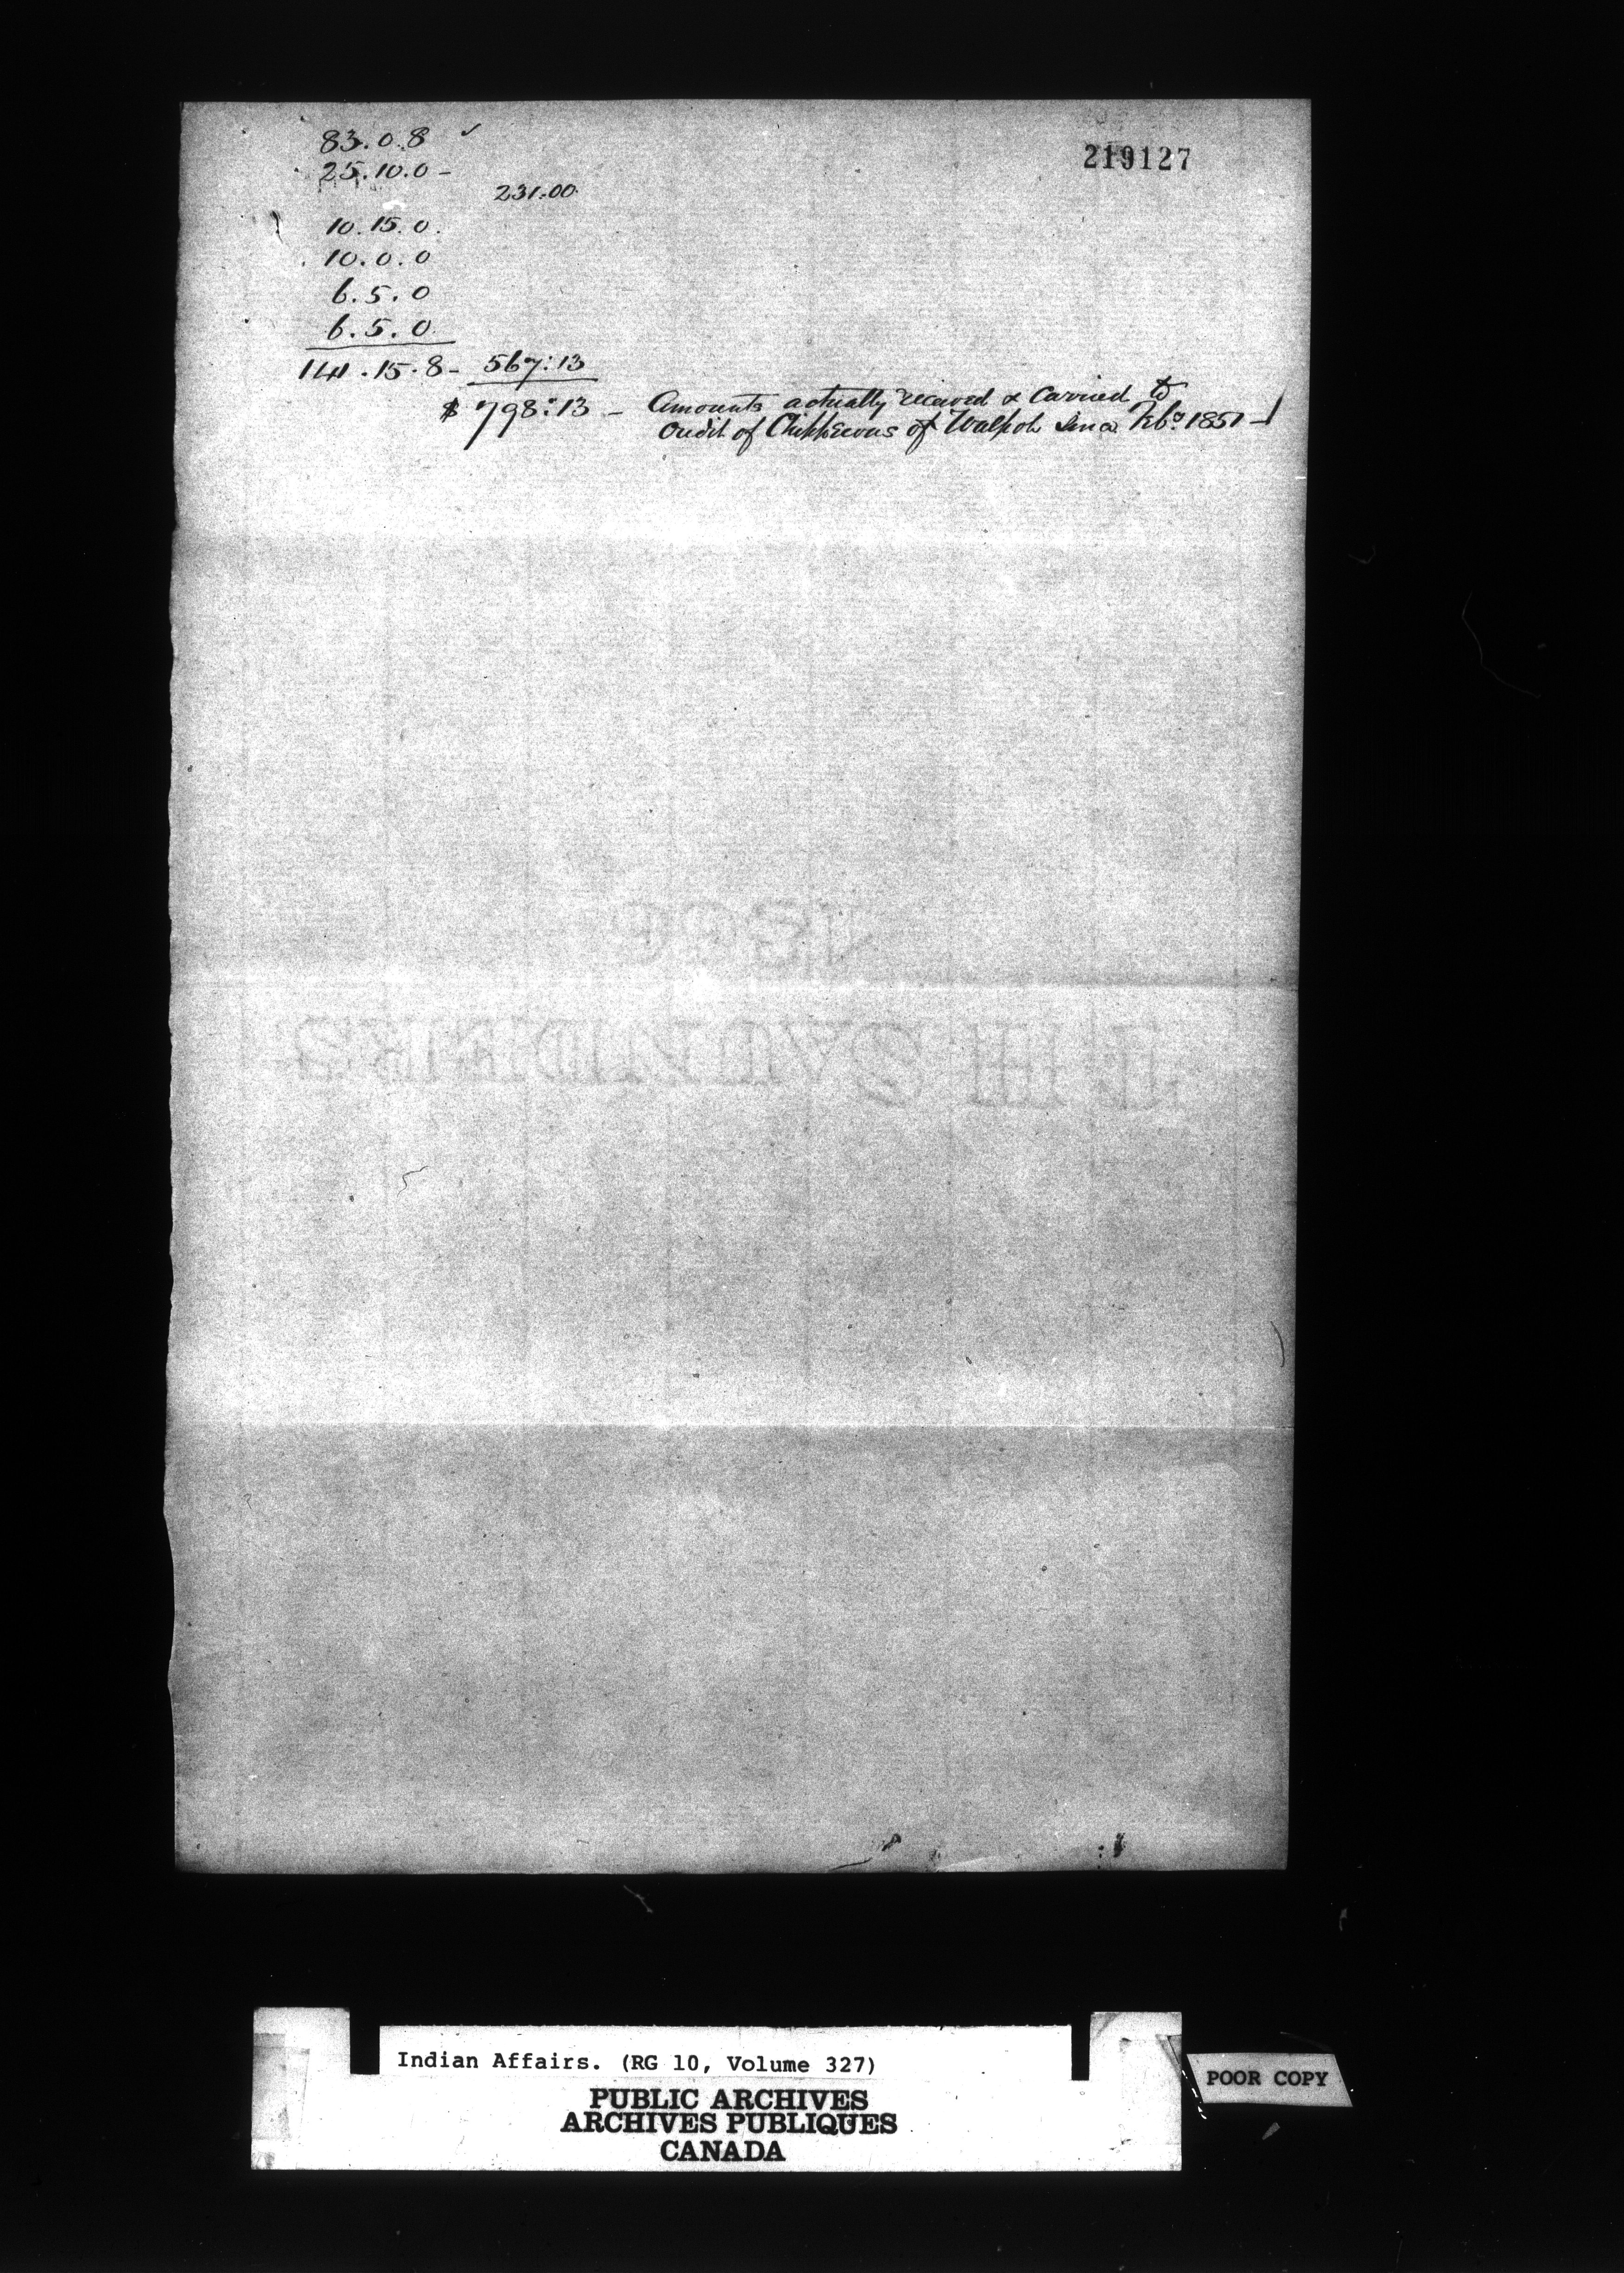 219127
83.0.8 ✓
25.10.0 -
231.00
10.15.0.
10.0.0
6.5.0
6.5.0
141.15.8 - 567:13
$ 798:13 - Amounts actually received & carried to
credit of Chippewas of Walpole since Feby. 1851 -
T H SAUNDERS
Indian Affairs. (RG 10, Volume 327)
PUBLIC ARCHIVES
ARCHIVES PUBLIQUES
CANADA
POOR COPY